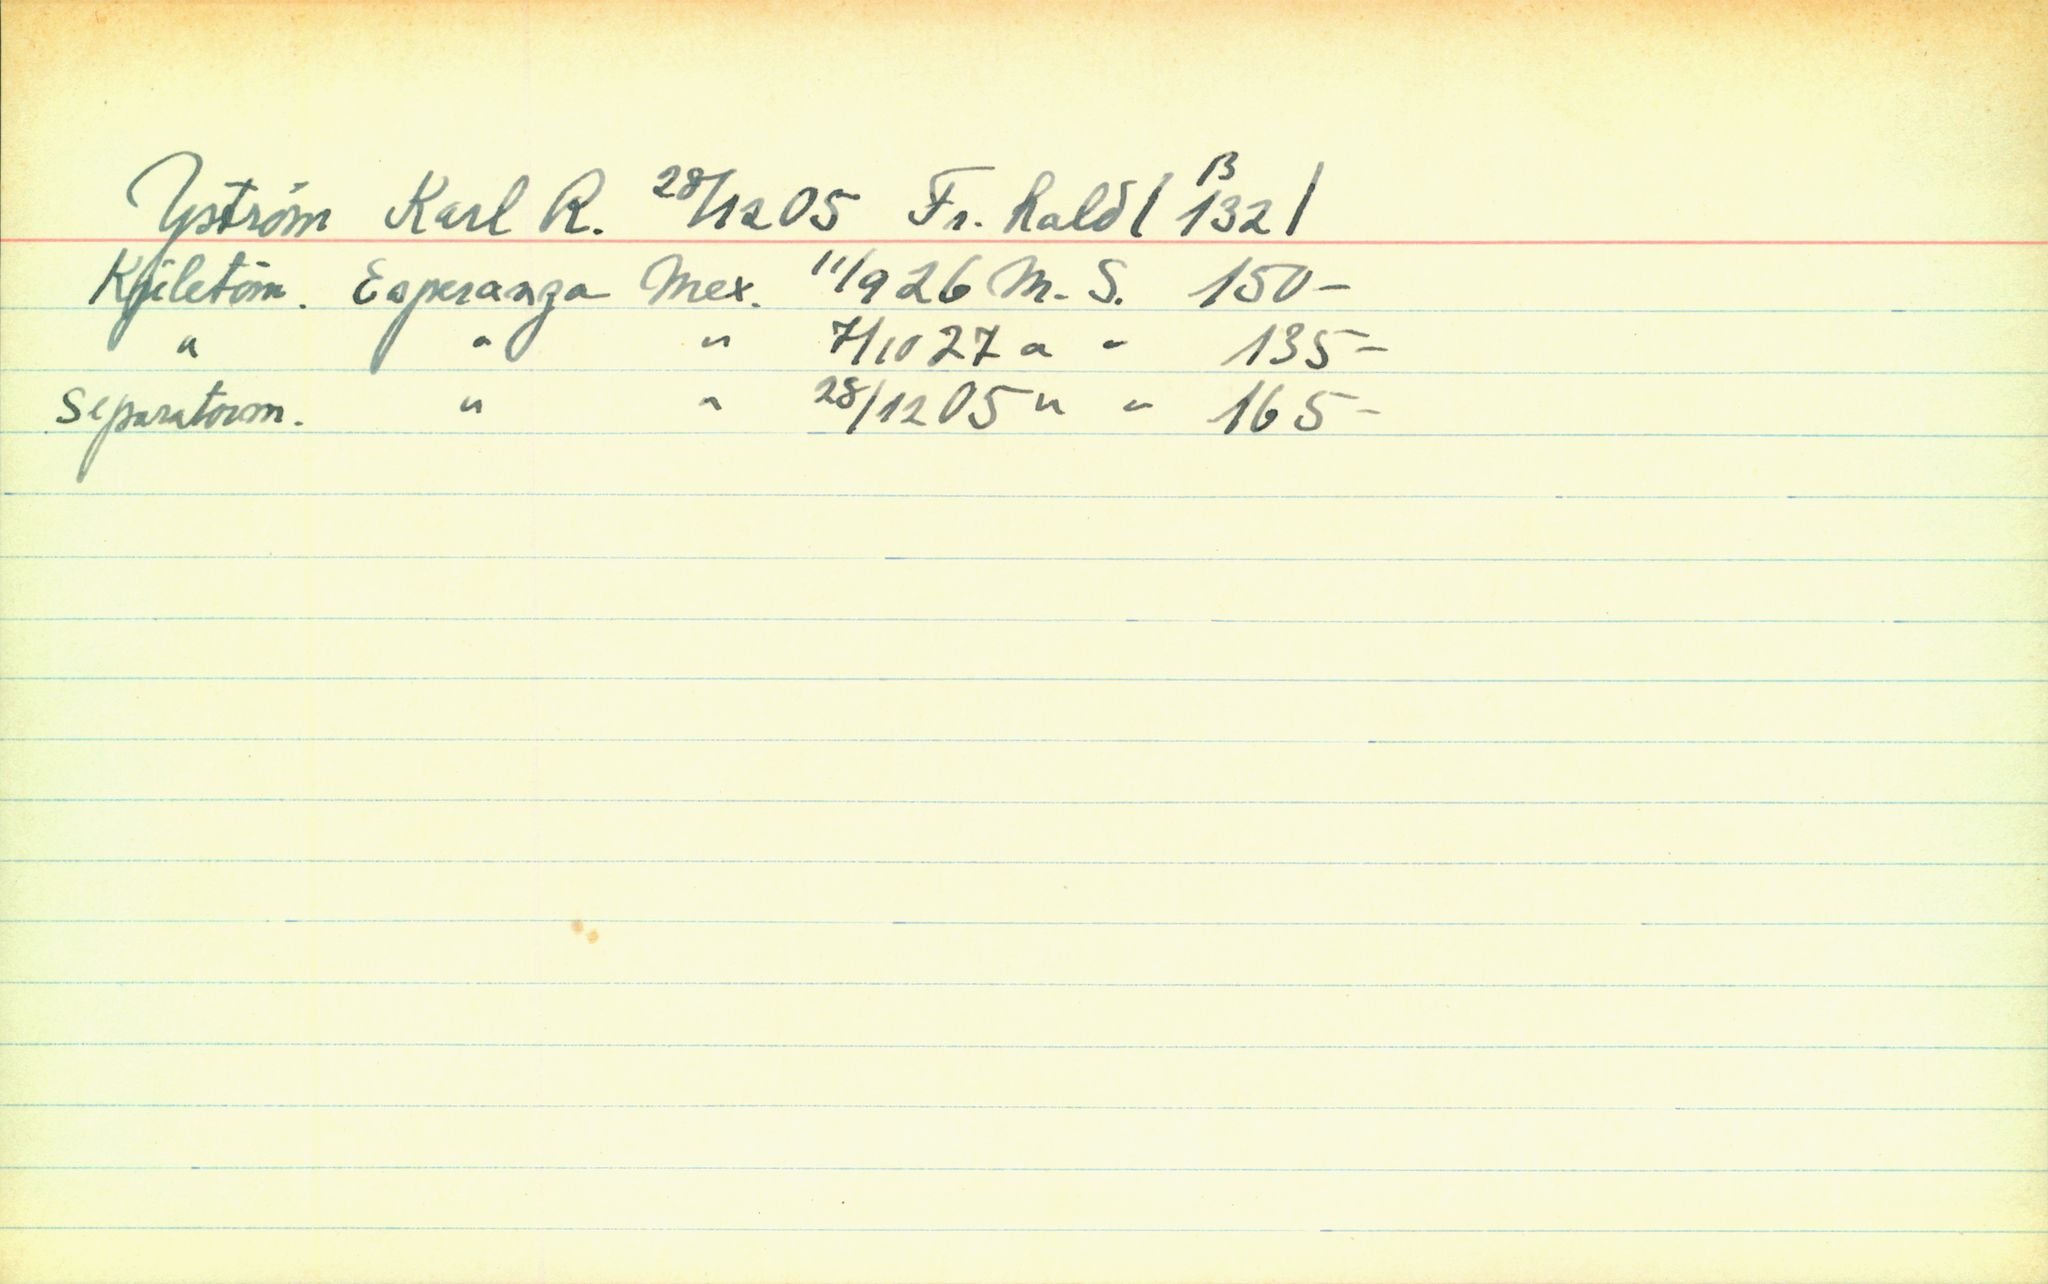 Yström Karl R. 28/12 05 Fr. kald | B 132 |
Kjiletöm. Esperanza Mex. 11/9 26 M. S. 150 -
" " " 7/10 27 " " 135 -
Separatorm. " " 28/12 05 " " 165 -